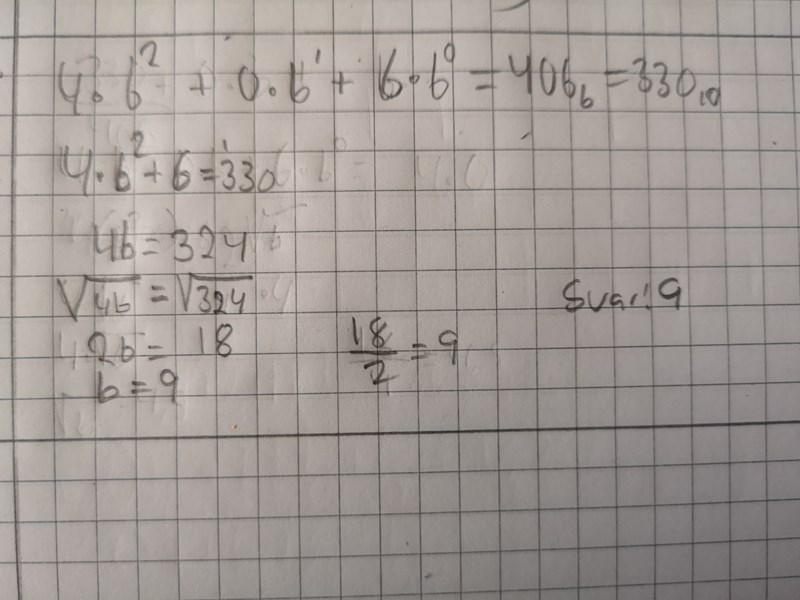 4·b² + 0·b¹ + 6·b⁰ = 406_b = 330₁₀
4·b² + 6 = 330
4b = 324
√4b = √324
2b = 18
18/2 = 9
Svar: 9
b = 9